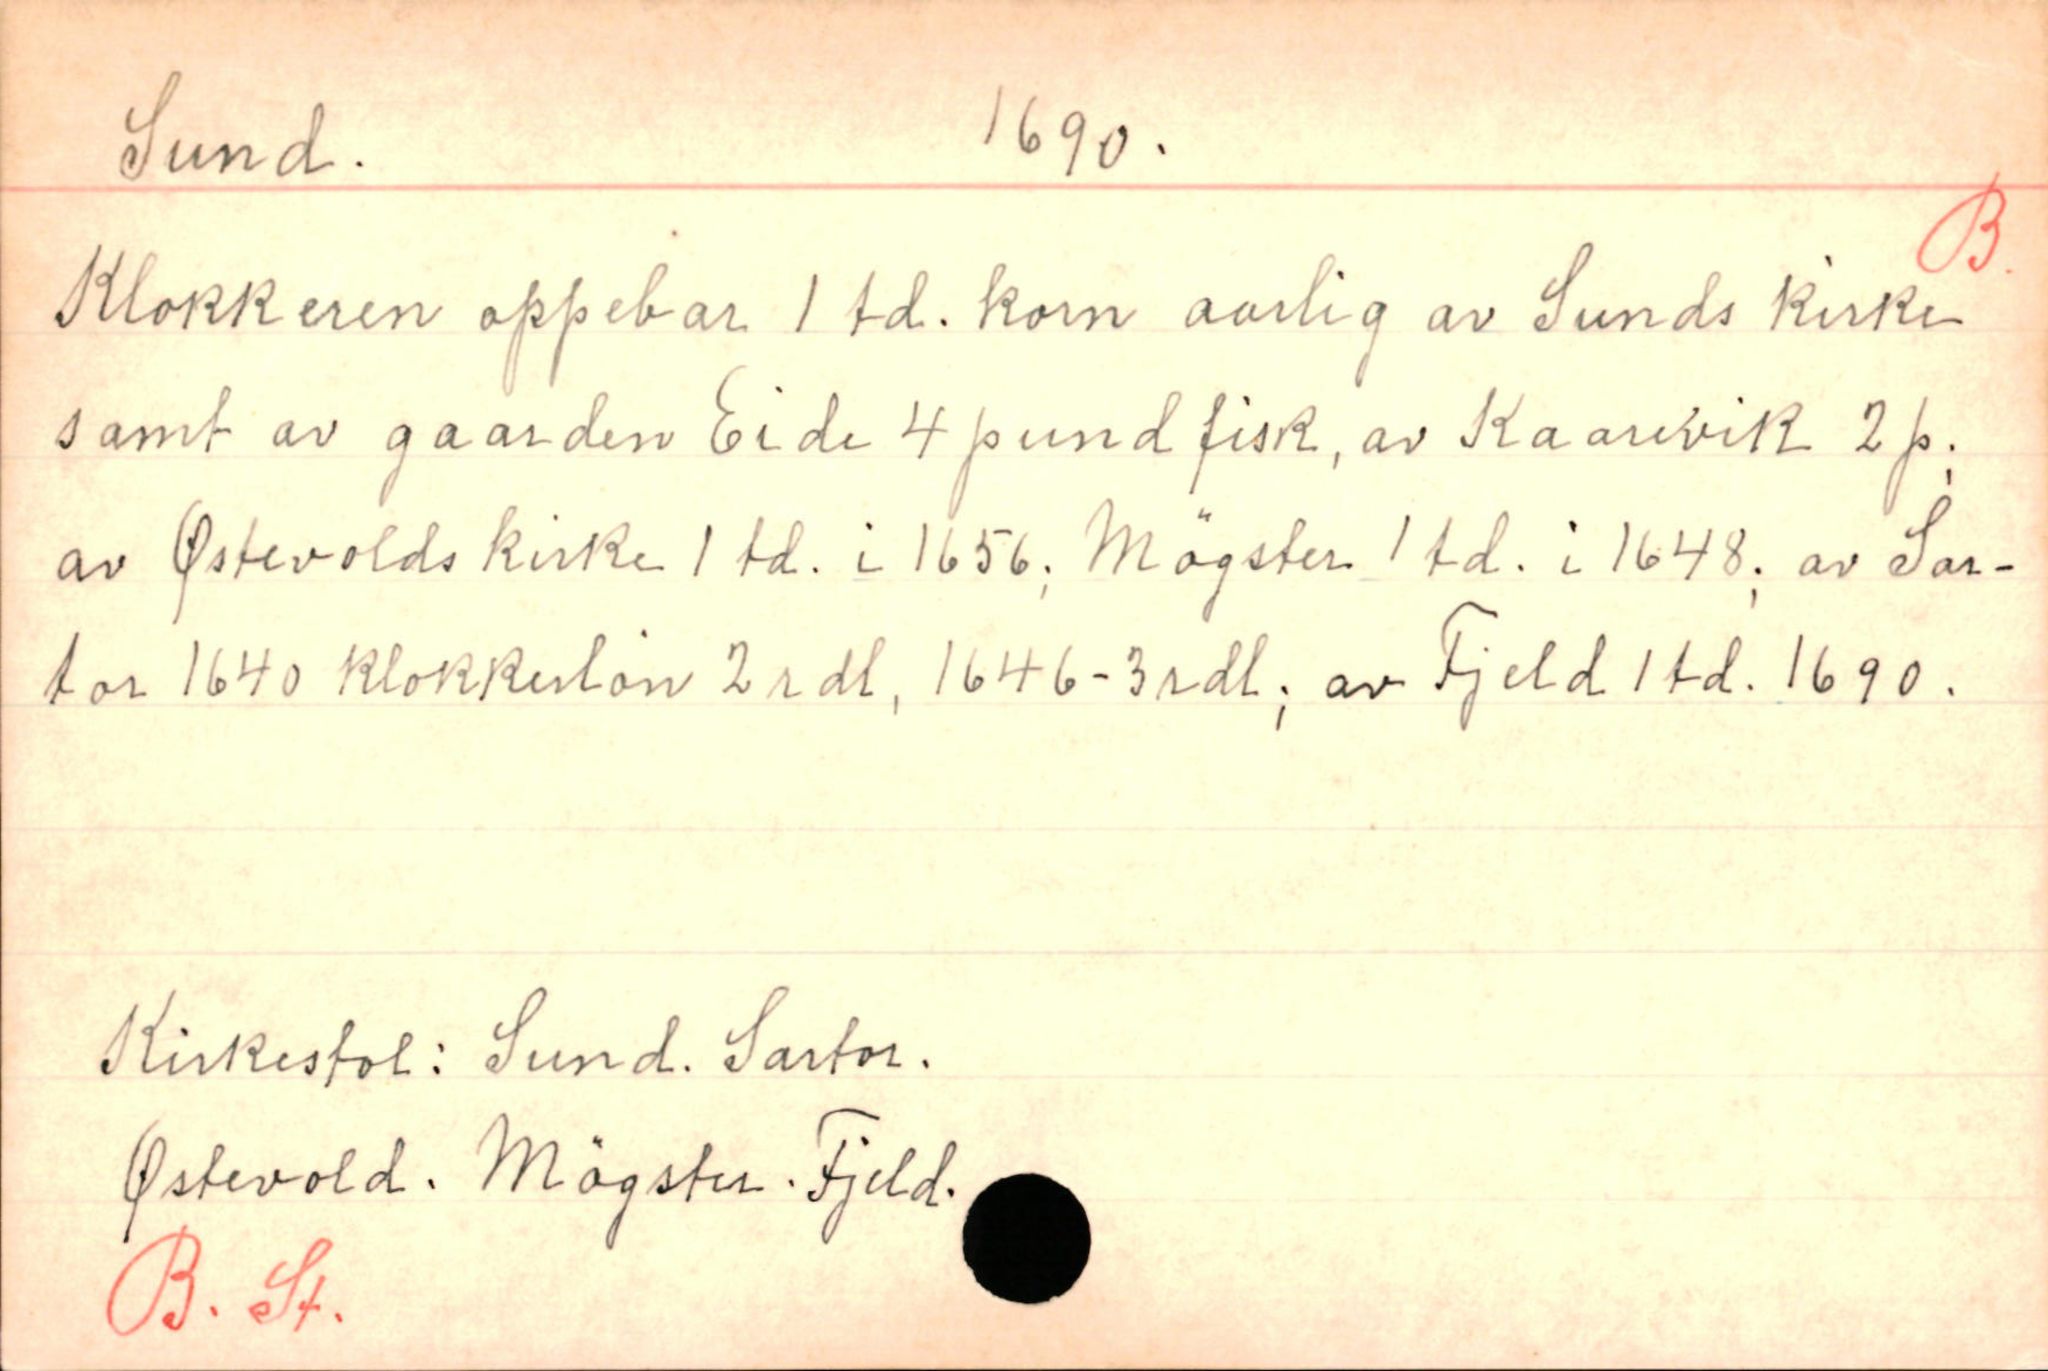 Sund. 1690.
B.
Klokkeren oppebar 1 td. korn aarlig av Sunds kirke
samt av gaarden Eide 4 pund fisk, av Kaarevik 2 p;
av Østevolds kirke 1 td. i 1656; Mögster 1 td. i 1648; av Sar-
tor 1640 klokkerlön 2 rdl, 1646-3 rdl; av Fjeld 1 td. 1690.
Kirkestol: Sund. Sartor.
Østevold. Mögster. Fjeld.
B. St.